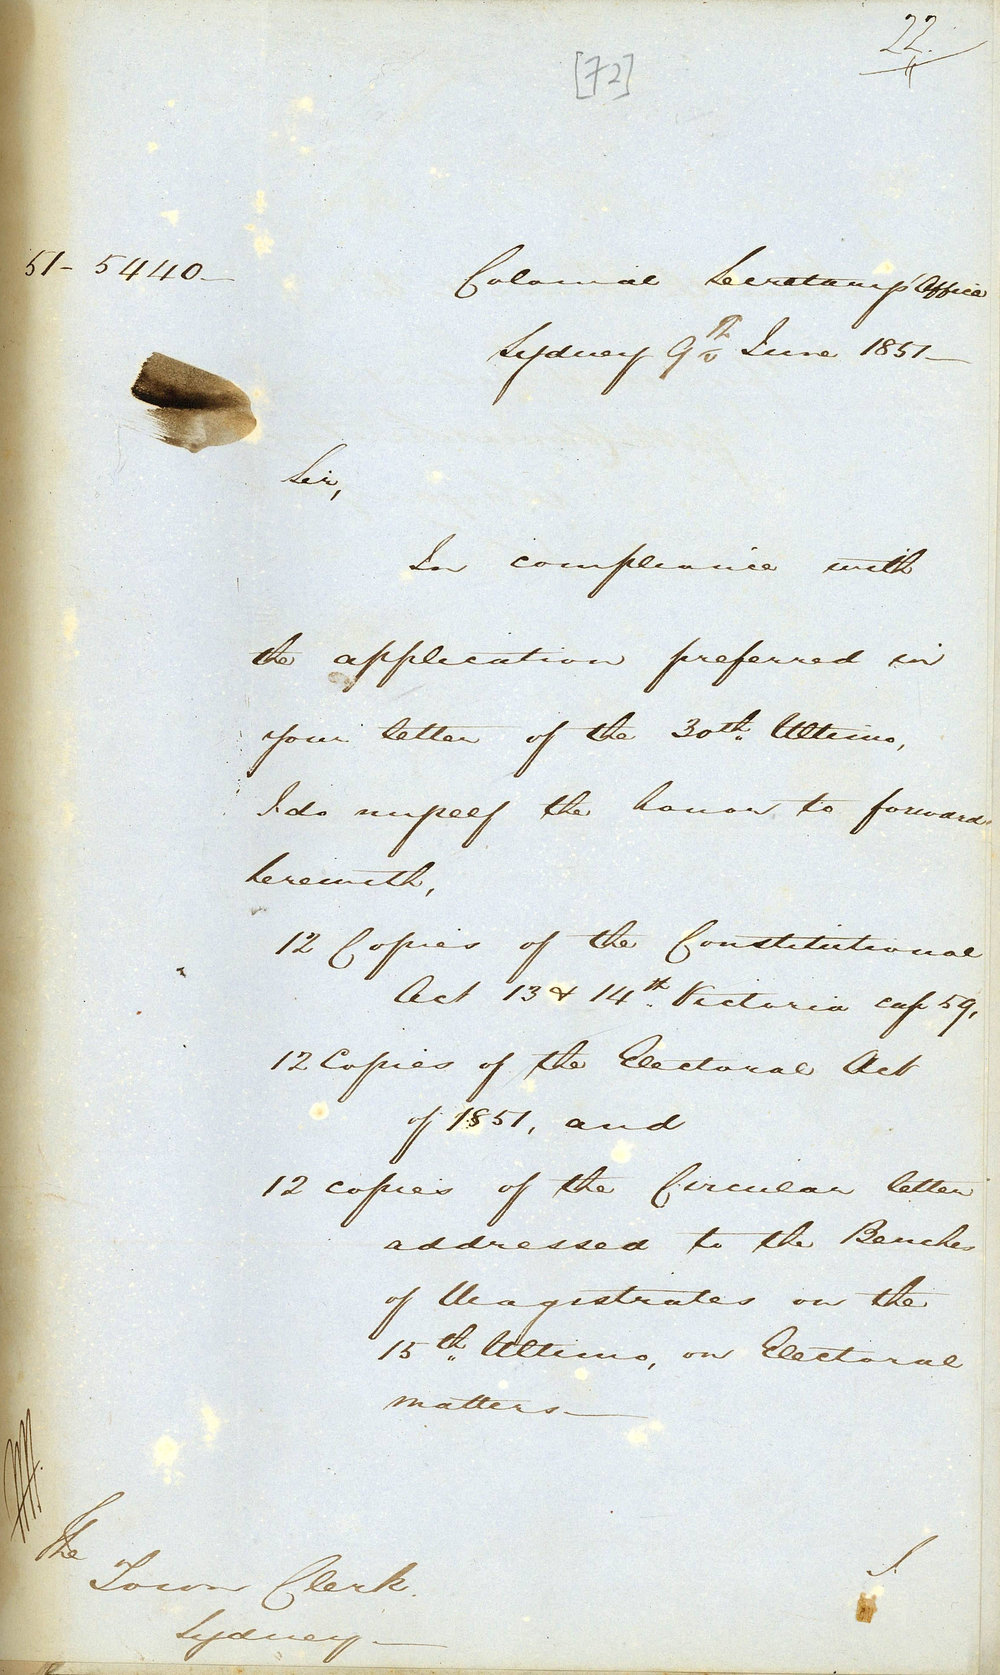 22.
[72]
51-5440-
Colonial Secretary's Office
Sydney 9th June 1851-
Sir,
In compliance with
the application preferred in
your letter of the 30th Ultimo,
I do myself the honor to forward
herewith,
12 Copies of the Constitutional
Act 13 & 14th Victoria cap 59,
12 Copies of the Electoral Act
of 1851, and
12 copies of the Circular letter
addressed to the Benches
of Magistrates on the
15th Ultimo, on Electoral
matters-
The
Town Clerk.
Sydney-
I